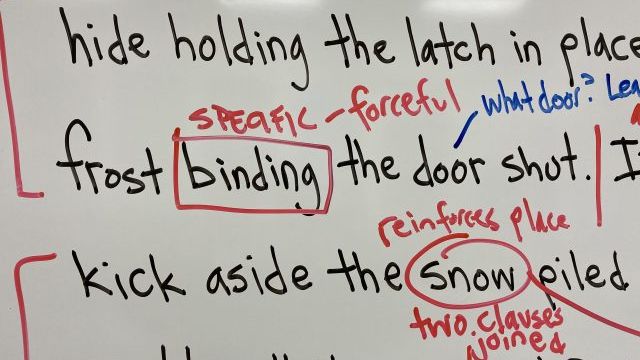 hide holding the latch in place
SPECIFIC - forceful
what door? Lea
frost binding the door shut. I
reinforces place
kick aside the snow piled
two clauses
joined